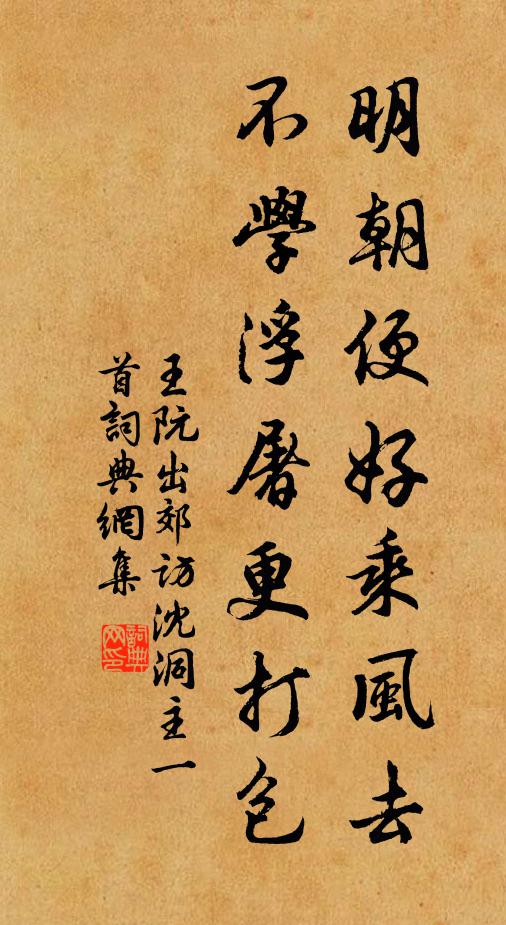 明朝便好乘風去
不學浮屠更打包
王阮出郊訪沈洞主一
首詞典網集
詞典網印